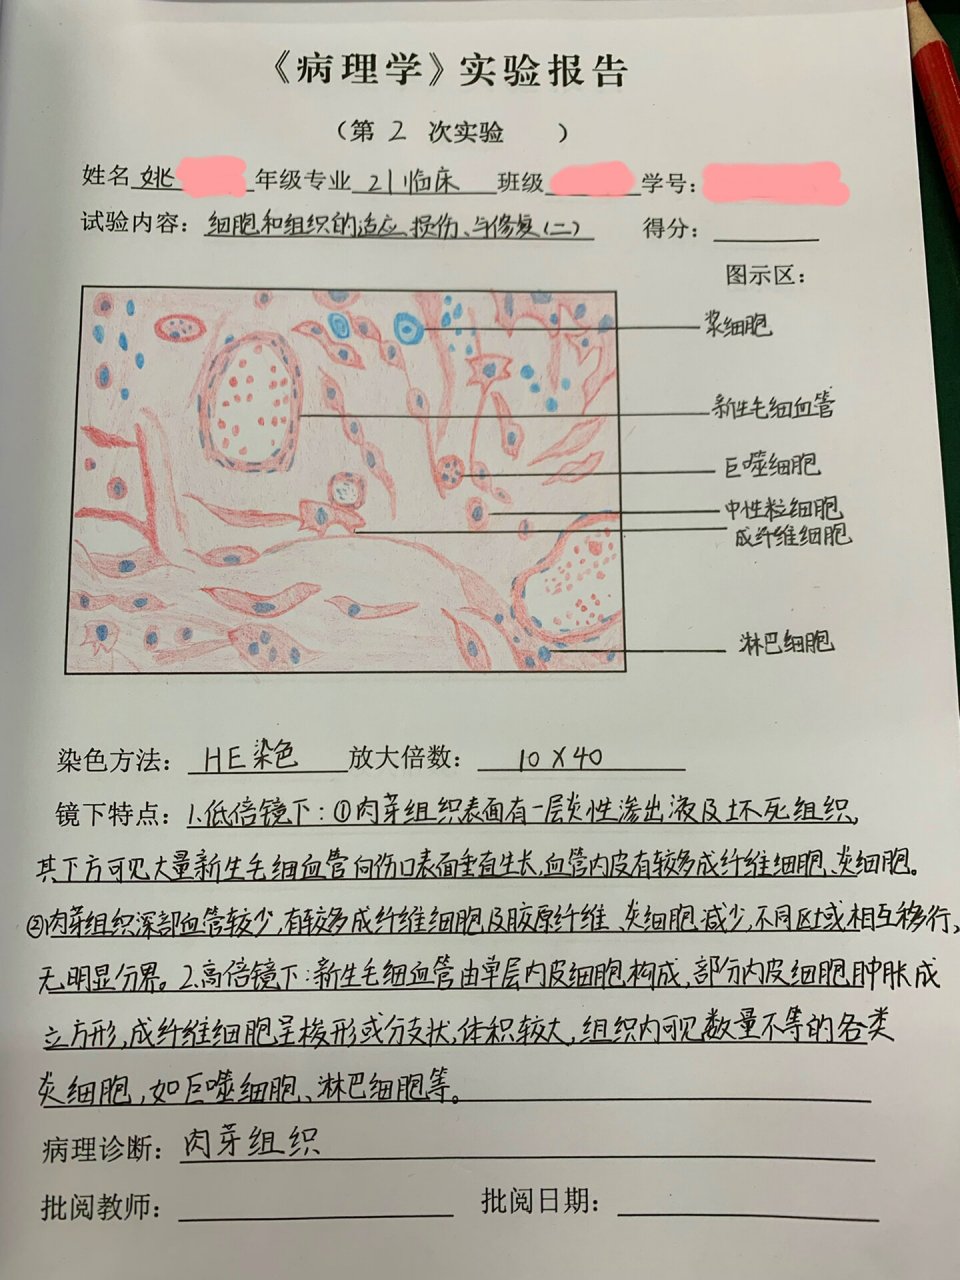 《病理学》实验报告
（第 2 次实验 ）
姓名 姚 年级专业 21临床 班级 学号：
试验内容：细胞和组织的适应、损伤、与修复(二) 得分：
图示区：
浆细胞
新生毛细血管
巨噬细胞
中性粒细胞
成纤维细胞
淋巴细胞
染色方法： HE染色 放大倍数： 10×40
镜下特点：1.低倍镜下：①肉芽组织表面有一层炎性渗出液及坏死组织，
其下方可见大量新生毛细血管向伤口表面垂直生长，血管内皮有较多成纤维细胞、炎细胞。
②肉芽组织深部血管较少，有较多成纤维细胞及胶原纤维、炎细胞减少，不同区域相互移行，
无明显分界。2.高倍镜下：新生毛细血管由单层内皮细胞构成，部分内皮细胞肿胀成
立方形，成纤维细胞呈梭形或分支状，体积较大，组织内可见数量不等的各类
炎细胞，如巨噬细胞、淋巴细胞等。
病理诊断：肉芽组织
批阅教师： 批阅日期：